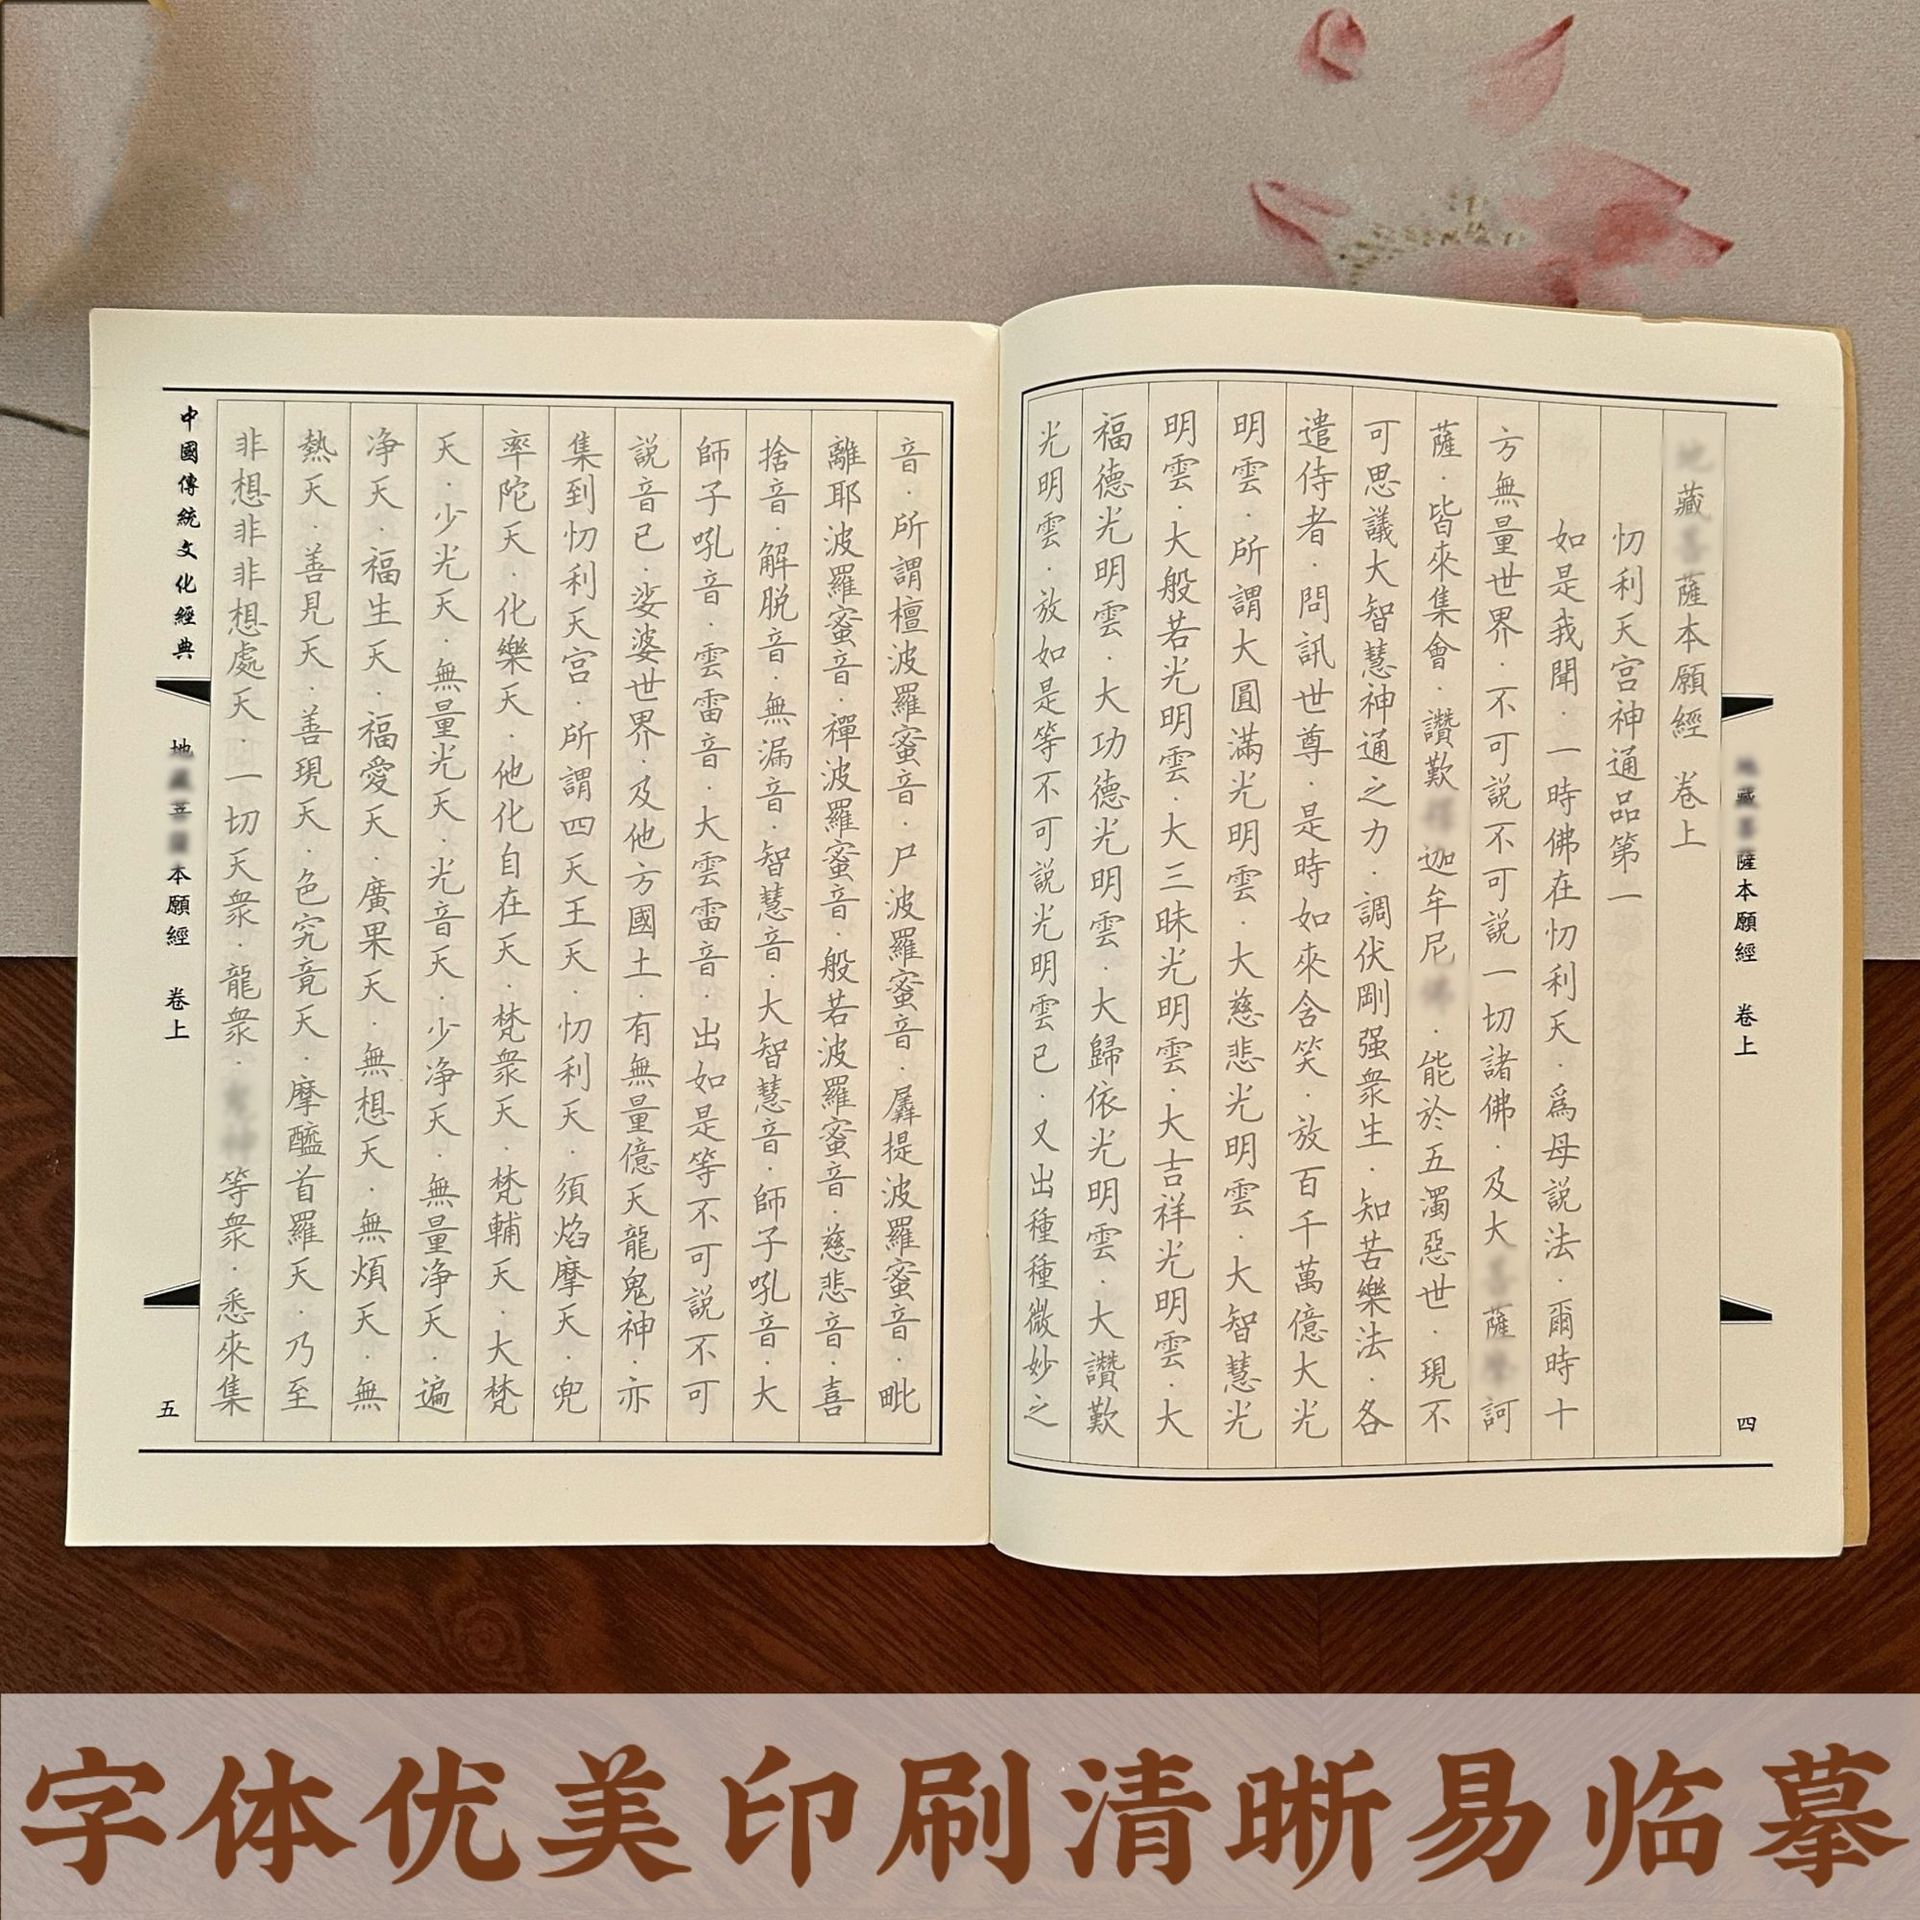 藏薩本願經 卷上
四
藏薩本願經 卷上
忉利天宮神通品第一
如是我聞．一時佛在忉利天．爲母説法．爾時十
方無量世界．不可説不可説一切諸佛．及大薩訶
薩．皆來集會．讚歎迦牟尼．能於五濁惡世．現不
可思議大智慧神通之力．調伏剛强衆生．知苦樂法．各
遣侍者．問訊世尊．是時如來含笑．放百千萬億大光
明雲．所謂大圓滿光明雲．大慈悲光明雲．大智慧光
明雲．大般若光明雲．大三昧光明雲．大吉祥光明雲．大
福德光明雲．大功德光明雲．大歸依光明雲．大讚歎
光明雲．放如是等不可説光明雲已．又出種種微妙之
音．所謂檀波羅蜜音．尸波羅蜜音．羼提波羅蜜音．毗
離耶波羅蜜音．禪波羅蜜音．般若波羅蜜音．慈悲音．喜
捨音．解脱音．無漏音．智慧音．大智慧音．師子吼音．大
師子吼音．雲雷音．大雲雷音．出如是等不可説不可
説音已．娑婆世界．及他方國土．有無量億天龍鬼神．亦
集到忉利天宮．所謂四天王天．忉利天．須焰摩天．兜
率陀天．化樂天．他化自在天．梵衆天．梵輔天．大梵
天．少光天．無量光天．光音天．少净天．無量净天．遍
净天．福生天．福愛天．廣果天．無想天．無煩天．無
熱天．善見天．善現天．色究竟天．摩醯首羅天．乃至
非想非非想處天．一切天衆．龍衆．等衆．悉來集
中國傳統文化經典
地藏本願經 卷上
五
字体优美印刷清晰易临摹